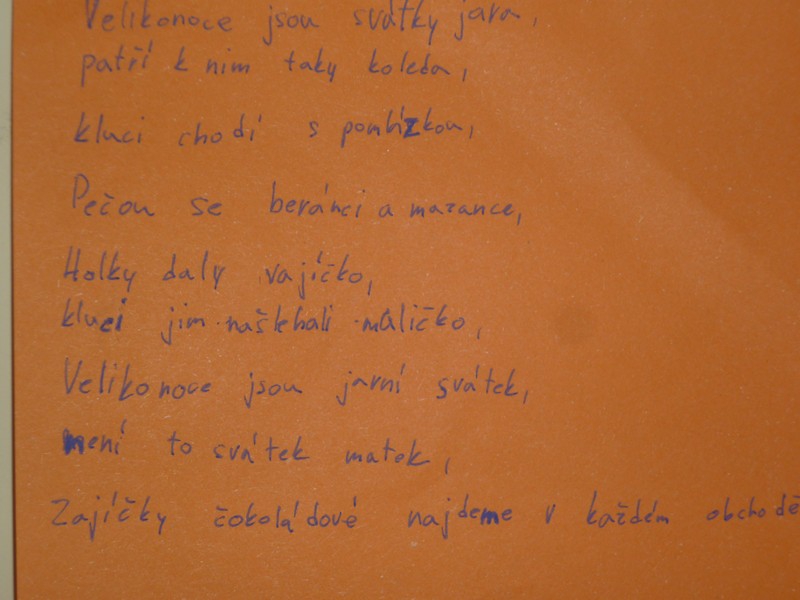 Velikonoce jsou svátky jara,
patří k nim taky koleda,
kluci chodí s pomlízkou,
Pečou se beránci a mazance,
Holky daly vajíčko,
kluci jim našlehali maličko,
Velikonoce jsou jarní svátek,
není to svátek matek,
Zajíčky čokoládové najdeme v každém obchodě